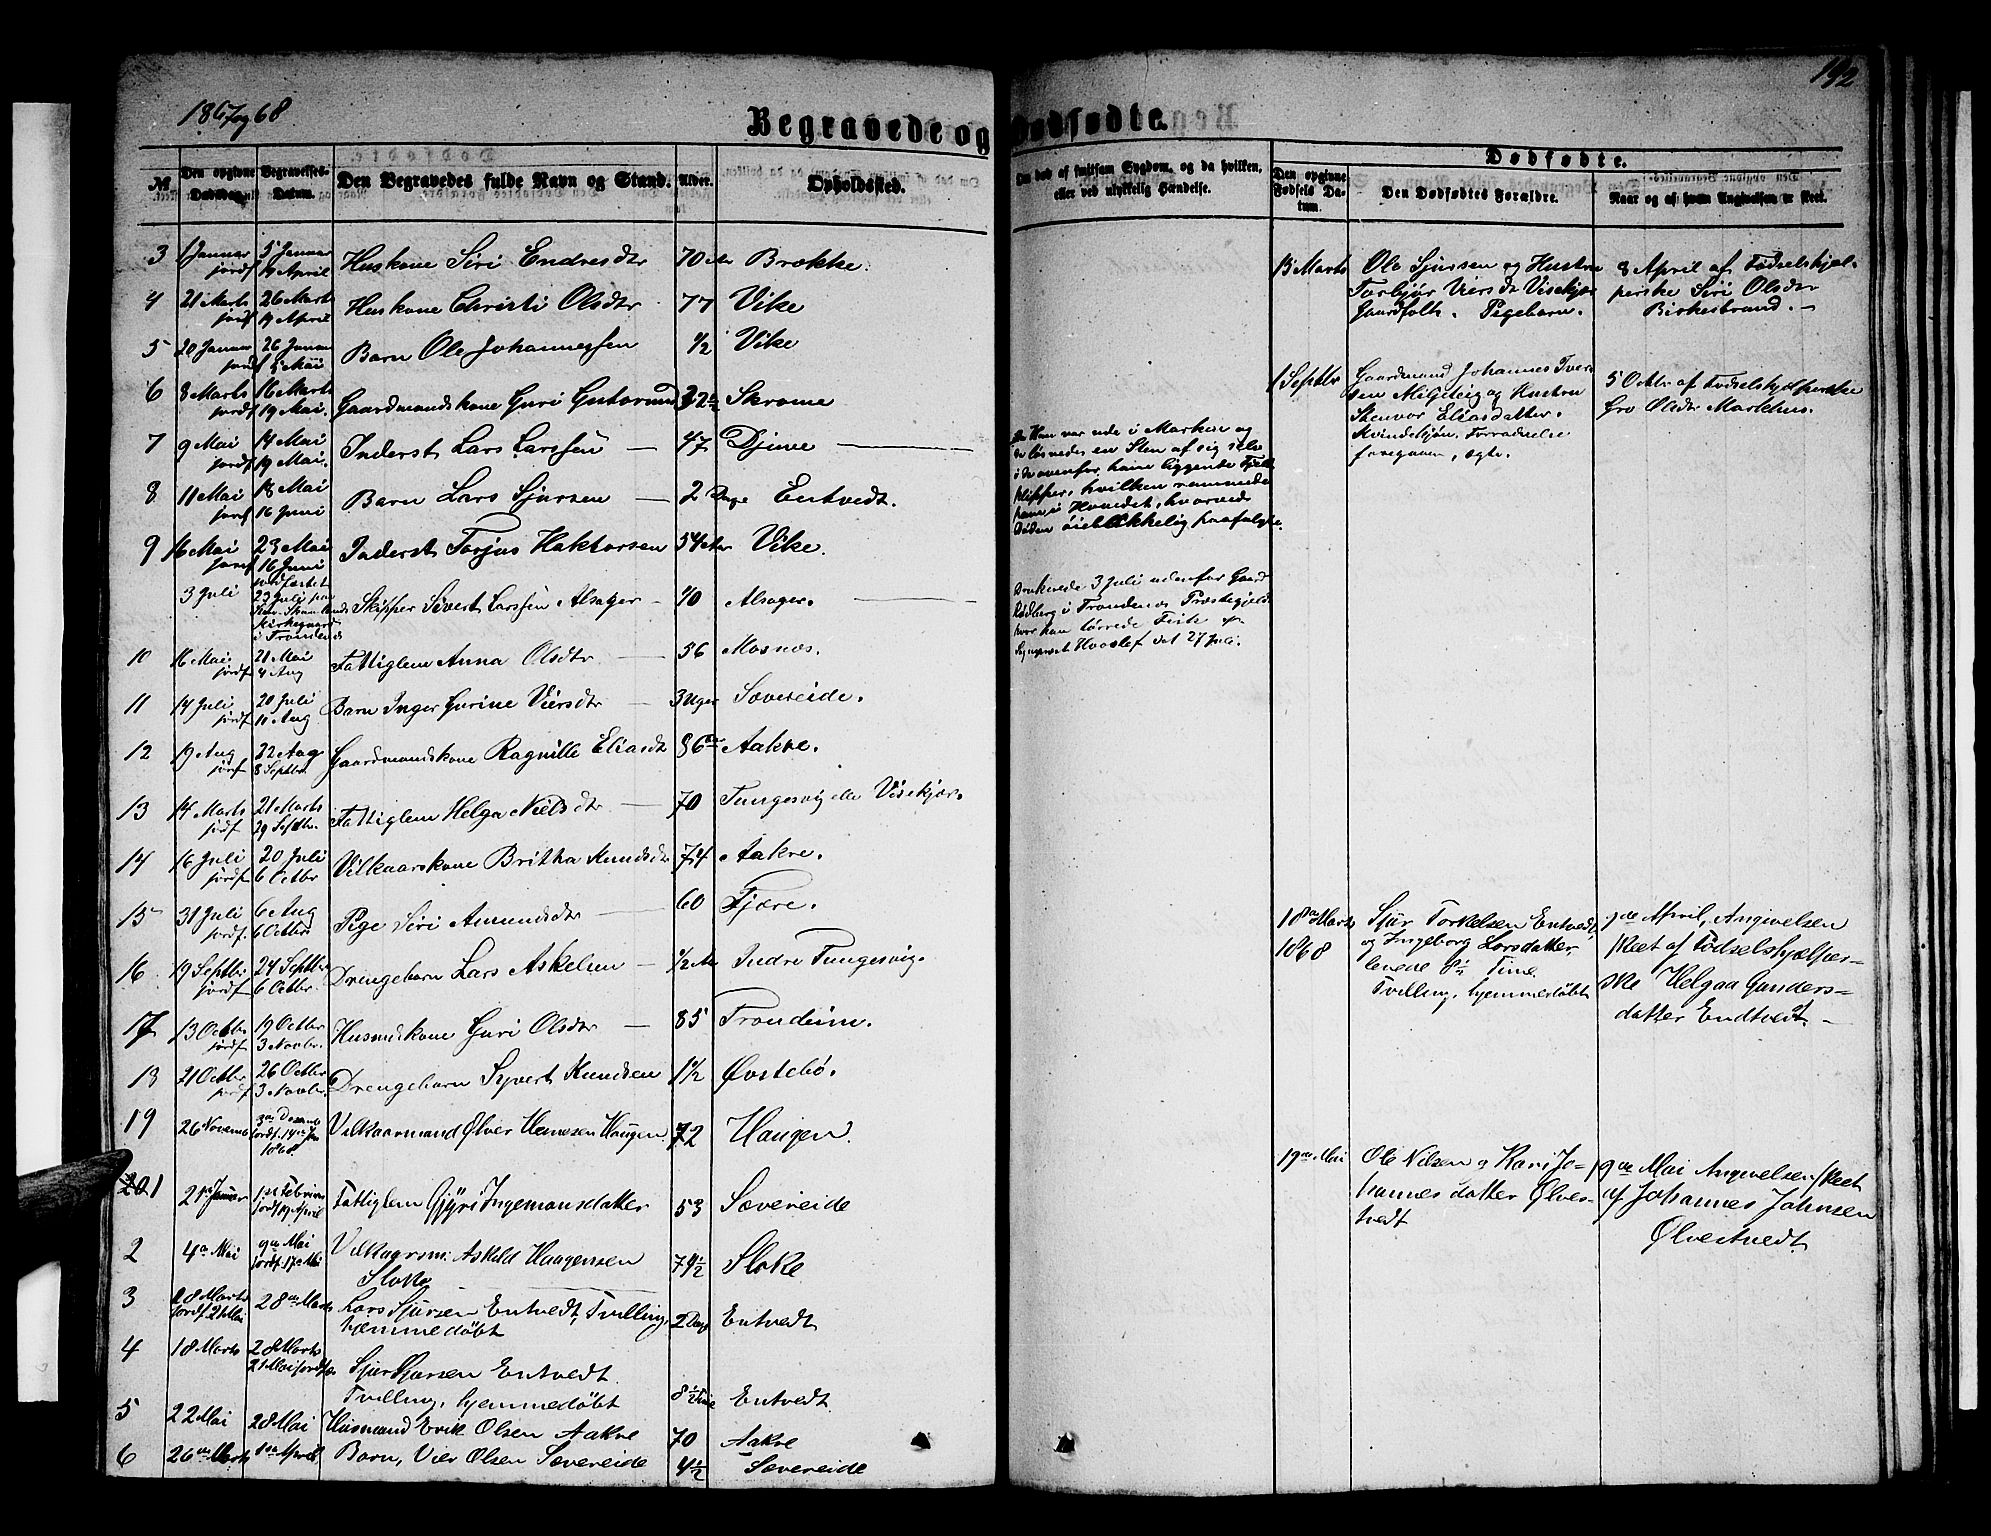 1867 og 68
192
Begravede og Dødfødte.
№
Den opgivne Dødsdag.
Begravelses-Datum.
Den Begravedes fulde Navn og Stand.
Alder.
Opholdssted.
Om død af smitsom Sygdom, og da hvilken, eller ved ulykkelig Hændelse.
Dødfødte.
Den opgivne Fødsels Datum.
Den Dødfødtes Forældre.
Naar og af hvem Angivelsen er skeet.
3 1 Januar jordf 5 Januar 19 April Huskone Siri Endresdtr 70 Aar Brekke.
4 21 Marts jordf 26 Marts 19 April Huskone Christi Olsdtr 77 Vike
5 20 Januar jordf 26 Januar 5 Mai Barn Ole Johannessen 1/2 Vike
6 8 Marts jordf 16 Marts 19 Mai. Gaardmandskone Guri 32½ Skromme
7 9 Mai jordf 14 Mai 19 Mai. Inderst Lars Larssen — 47 Djuve
8 11 Mai jordf 18 Mai 16 Juni Barn Lars Sjursen — 2 Dage Entvedt.
9 16 Mai jordf 23 Mai 16 Juni Inderst Torjus Haktorsen 54 Aar Vike.
3 Juli jordfæstet 23 Juli paa Kirkegaard i Trondenæs Skipper Sivert Larssen Alsager — 40 Alsager.
10 16 Mai. jordf 21 Mai 4 Aug Fattiglem Anna Olsdtr — 56 Mosnæs.
11 14 Juli jordf 20 Juli 11 Aug Barn Inger Gurine Viersdtr — 3 Uger Sævereide.
12 19 Aug jordf 22 Aug 8 Septbr. Gaardmandskone Ragnille Eliasdt 36 Aakre.
13 14 Marts jordf 21 Marts 29 Septbr. Fattiglem Helga Nielsdtr — 70 Tungesvig elle Visekjær.
14 16 Juli jordf 20 Juli 6 Octbr Vilkaarskone Britha Knudsdtr 74 Aakre.
15 31 Juli jordf. 6 Aug 6 Octbr Pige Siri Amundsdtr — 60 Fjære.
16 19 Septbr jordf 24 Septbr 6 Octbr. Drengebarn Lars Askelsen — 1/2 Aar Indre Tungesvig.
17 13 Octbr jordf 19 Octbr 3 Novbr. Husmdskone Guri Olsdtr — 85 Trondeim.
18 21 Octbr jordf 26 Octbr 3 Novbr. Drengebarn Syvert Knudsen 1½ Øvstebø.
19 26 Novemb 3die Decemb jordf. 14de Jan 1868 Vilkaarmand Ølver Hansen Haugen 72 Haugen.
1 21de Januar 1ste Februar jordf 19 April Fattiglem Gjyri Ingemansdatter 53 Sævereide
2 4de Mai 9de Mai jordf. 17de Mai Vilkaarsm: Askild Haagensen
Sloke 79½ Sloke
3 18 Marts jordf 21 Mai 28de Marts Lars Sjursen Entvedt, Tvilling,
hjemmedøbt 2 Dage Entvedt
4 18 Marts 28 Marts 21 Mai jordf. Sjur Sjursen Entvedt
Tvilling, hjemmedøbt 8½ Time Entvedt
5 22 Mai 28 Mai Husmand Erik Olsen Aakre 70 Aakre
6 26de Marts 1ste April Barn, Vier Olsen Sævereide 4½ Sævereide
Da Han var ude i Marken og
løsnedes en Sten af sig selv
i de ovenfor ham liggende Fjeld
klipper, hvilken rammede
ham i Hovedet, hvorved
Døden øieblikkelig paafulgte.
Druknede 3 Juli udenfor Gaard
Rødberg i Trondenæs Præstegjeld
hvor han tørrede Fisk
Hvoslef dat 27 Juli.
13 Marts
Ole Sjursen og Hustru
Torbjør Viersdr Visekjær
Gaardfolk. Pigebarn.
8 April af Fødselshjæl-
perske Siri Olsdtr
Birkestrand. —
1 Septbr
Gaardmand Johannes Iver
sen Milgiteig og Hustru
Stenvor Eliasdatter.
Kvindekjøn. Forraadnelse
foregaaen, ægte.
5 Octbr af Fødselshjelperske
Gro Olsdtr Markhus.
18de Marts
1868
Sjur Torkelsen Entvedt
og Ingeborg Larsdatter,
levede 8½ Time
Tvilling, hjemmedøbt
7de April, Angivelsen
skeet af Fødselshjelper-
ske Helgaa Gunders-
datter Endtvedt. —
19de Mai
Ole Nilsen og Kari Jo-
hannesdatter Ølves-
tvedt
9de Mai Angivelsen skeet
af Johannes Johnsen
Ølvestvedt